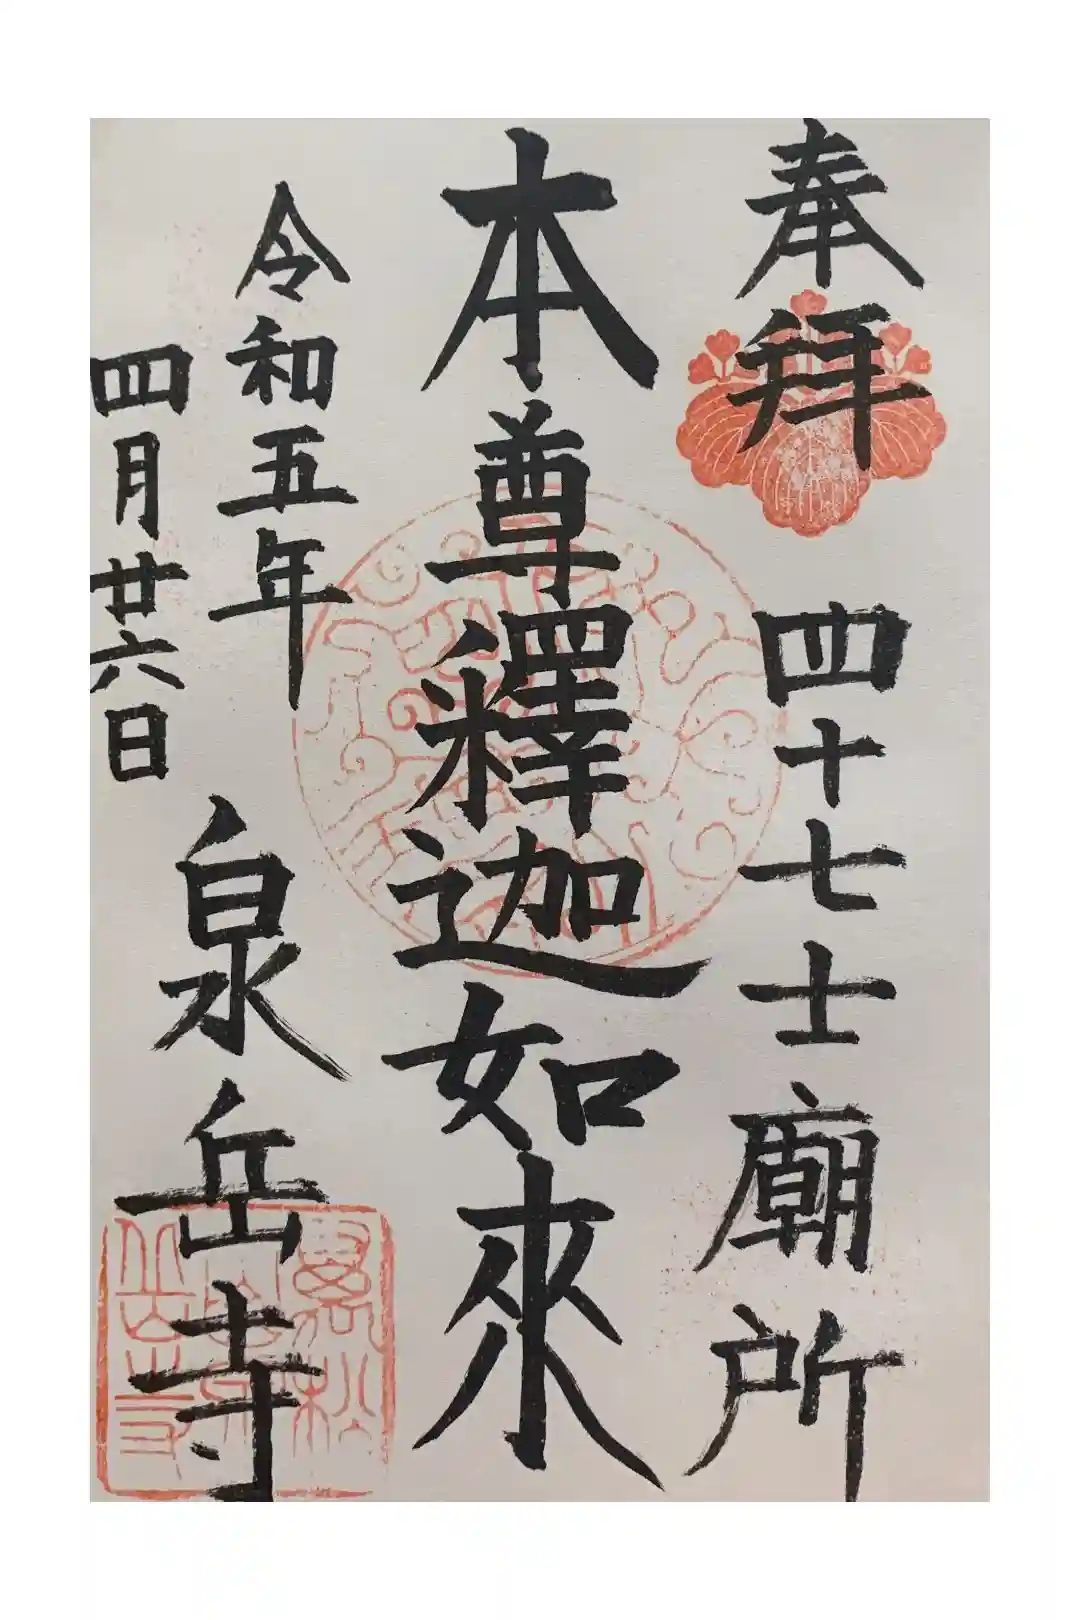 奉拜
四十七士廟所
本尊釋迦如來
令和五年
四月廿六日
泉岳寺